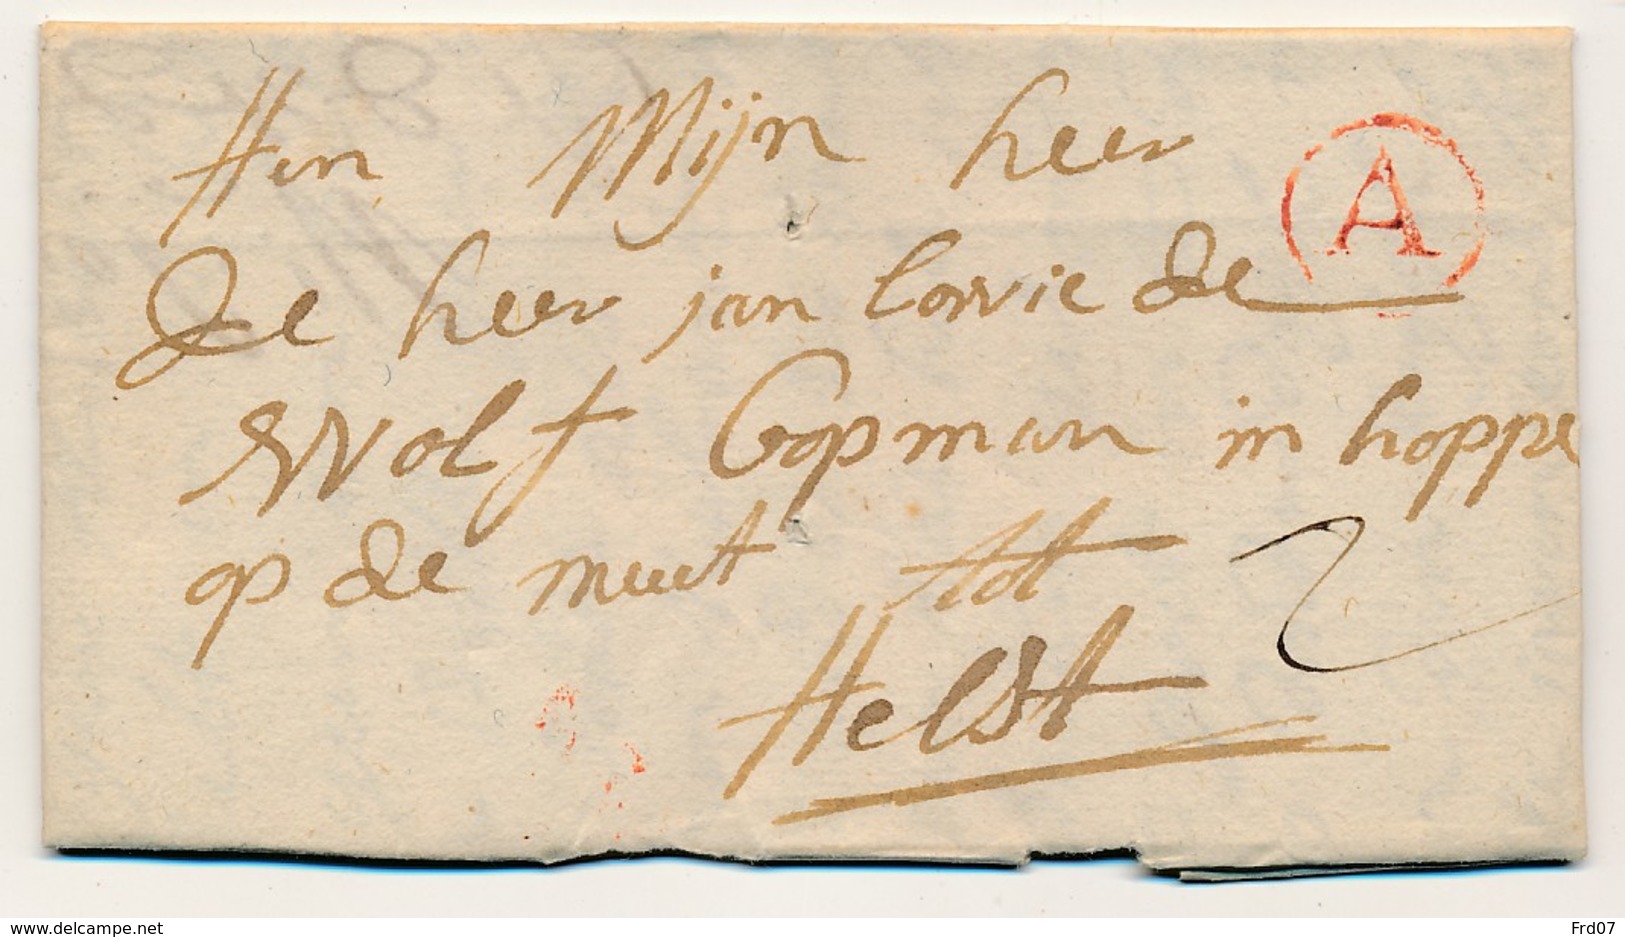 Hen Mijn heer
A
De heer jan Cowie de
Wolf Copman in hoppe
op de muet tot
2
Helst
www.delcampe.net
Frd07